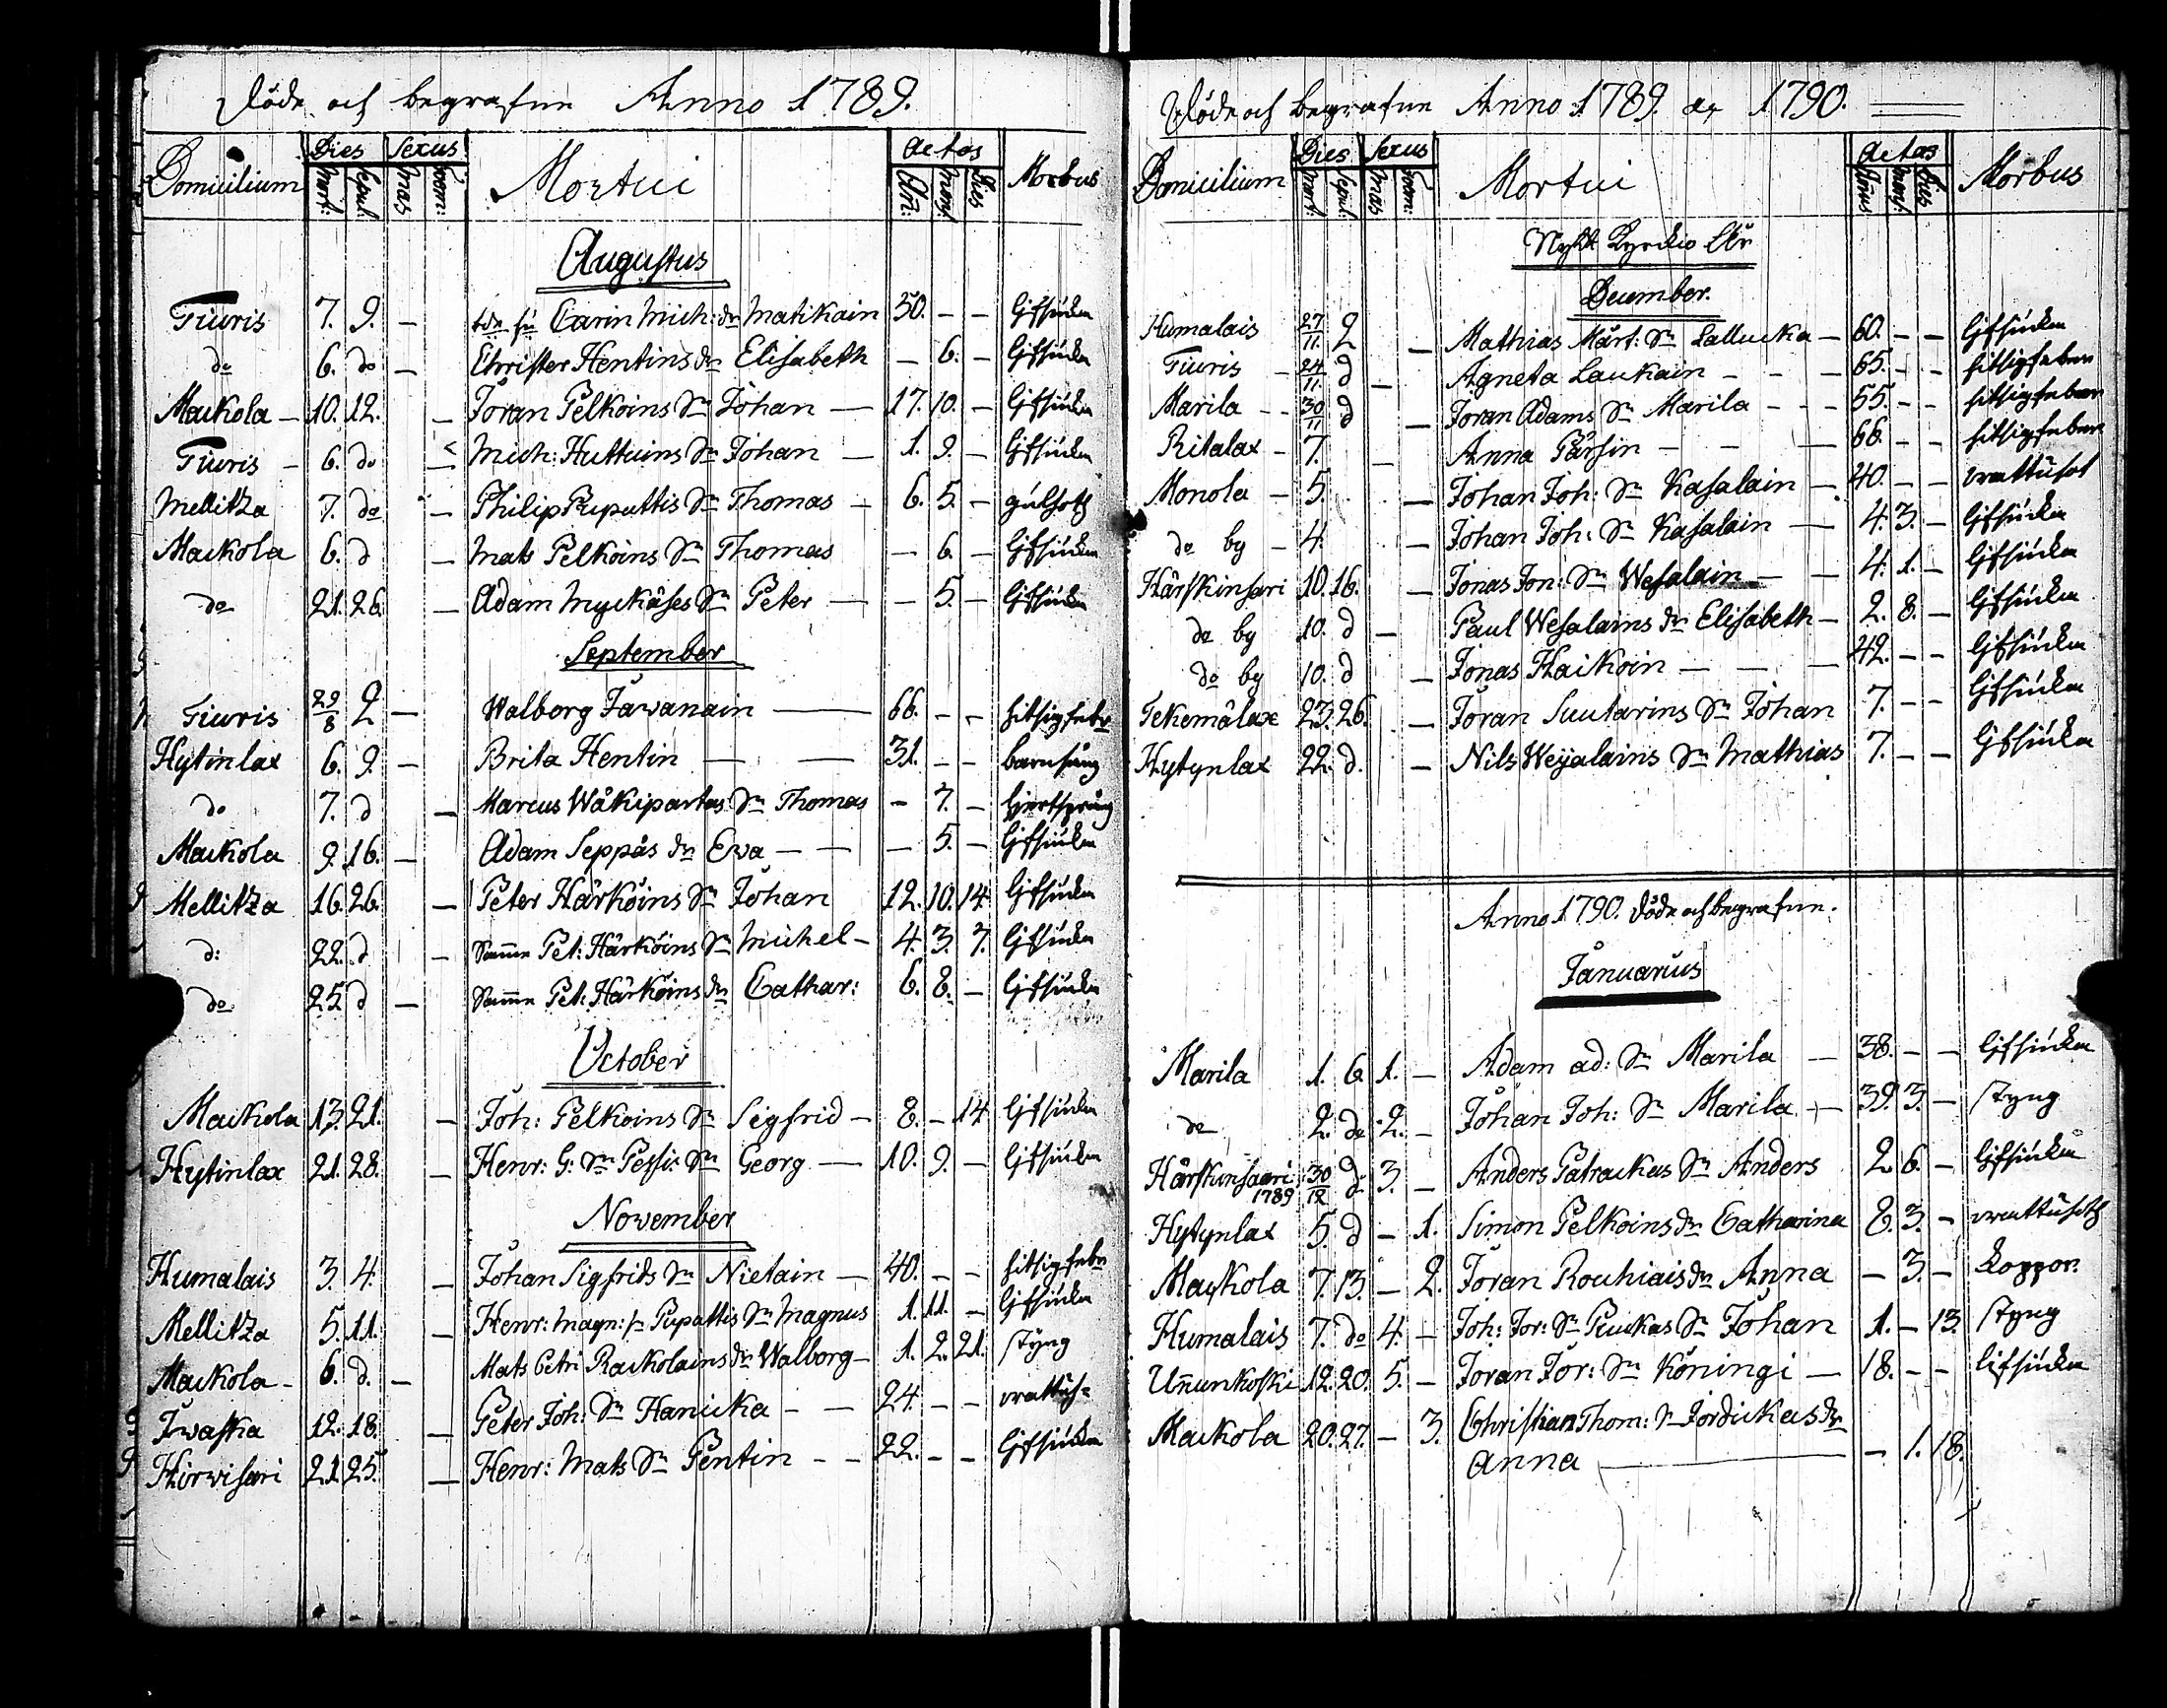 Döde och begrafne Anno 1789.
Domicilium Dies Sexus Mortui Aetas Morbus
Mort: Sepul: Mas Foem: An: Mens Dies
Augustus
Tiuris 7. 9. – Carin Mich: dr Matikain 30. – – Lifsiukn
do 6. do – Christer Hentins dr Elisabeth – 6. – Lifsiukn
Mackola – 10. 12. – Jöran Pelkoins Sn Johan – 17. 10. – Lifsiukn
Tiuris – 6. do – Mich: Huttuins Sn Johan – 1. 9. – Lifsiukn
Mellitza 7. do – Philip Puputtis Sn Thomas – 6. 5. – gulsoth
Mackola 6. d – Mats Pelkoins Sn Thomas – 6. – Lifsiukn
do 21. 26. – Adam Myckäses Sn Peter – – 5. – Lifsiukn
September
Tiuris 29/8 2 – Walborg Jäwanain – 66. – – hitsigfebr
Hytinlax 6. 9. – Brita Hentin – – 31. – – barnsäng
do 7. d – Marcus Wäkipartas Sn Thomas – 7. – hiertsprång
Mackola 9. 16. – Adam Seppäs dr Ewa – – – 5. – Lifsiukn
Mellitza 16. 26. – Peter Härköins Sn Johan 12. 10. 14. Lifsiukn
d: 22. d – Samme Pet: Härköins Sn Michel – 4. 3. 7. Lifsiukn
do 25. d – Samme Pet: Härköins dr Cathar: 6. 8. – Lifsiukn
October
Mackola 13. 21. – Joh: Pelkoins Sn Sigfrid – 8. – 14 Lifsiukn
Hytinlax 21. 28. – Henr: G: Sn Pessis Sn Georg – 10. 9. – Lifsiukn
November
Humalais 3. 4. – Johan Sigfrids Sn Nietain – 40. – – hitsigfebr
Mellitza 5. 11. – Henr: Magn: Pupattis Sn Magnus 1. 11. – Lifsiukn
Mackola – 6. d. – Mats Petri Rackolains dr Walborg – 1. 2. 21. styng
Iwaska 12. 18. – Peter Joh: Sn Hanicka – – 24. – –
Hirwisari 21. 25. – Henr: Mats Sn Pentin – – 22. – – Lifsiukn
Döde och begrafne Anno 1789. 1790.
Domicilium Dies Sexus Mortui Aetas Morbus
Mort: Sepul: Mas Foem: Annus Mens: Dies
Nytt Kyrckio Åhr
December.
Humalais 27/11. 2 – Mathias Märt: Sn Lallucka – 60. – – Lifsiukn
Tiuris – 24/11. d – Agneta Laukain – – – 65. – – hitsigfeber
Marila – – 30/11 d – Jöran Adams Sn Marila – – – 55. – – hitsigfeber
Ritalax – 7. – Anna Pärsin – – – 66. – – hitsigfeber
Monola – 5. – Johan Joh: Sn Kasalain – 40. – – wattusot
do by – 4. – Johan Joh: Sn Kasalain – 4. 3. – Lifsiukn
Härskinsari 10. 16. – Jonas Jon: Sn Wesalain – – 4. 1. – Lifsiukn
do by 10. d – Paul Wesalains dr Elisabeth – 2. 8. – Lifsiukn
do by 10. d – Jonas Haikoin – – – 42. – – Lifsiukn
Tekemälax 23. 26. – Jöran Suutarins Sn Johan 7. – – Lifsiukn
Hytynlax 22. d. – Nils Weijalains Sn Mathias 7. – – Lifsiukn
Anno 1790. döde och begrafne.
Januarius
Marila 1. 6 1. – Adam ad: Sn Marila – 38. – – Lifsiukn
do 2. do 2. – Johan Joh: Sn Marila – 39. 3. – styng
Härskinsaari 1789 30/12 d 3. – Anders Patrackas Sn Anders 2. 6. – Lifsiukn
Hytynlax 5. d – 1. Simon Pelkoins dr Catharina 8. 3. – wattusoth
Mackola 7. 13. – 2. Jöran Rouhiais dr Anna – 3. – Koppor.
Humalais 7. do 4. – Joh: Jör: Sn Puckas Sn Johan 1. – 13. styng
Unnunkoski 12. 20. 5. – Jöran Jör: Sn Köningi – 18. – – lifsiukn
Mackola 20. 27. – 3. Christian Thom: Sn Jordickas dr
Anna – – 1. 18.